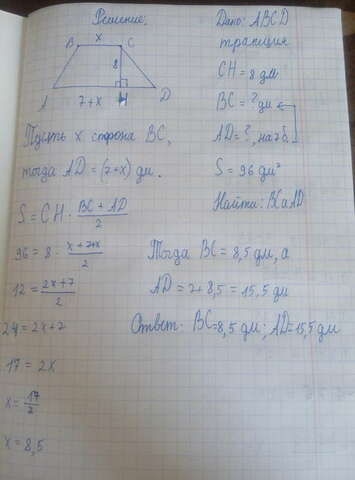 Решение:
B x C
8
A 7+x H D
Дано: ABCD
трапеция
CH = 8 дм
BC = ? дм
AD = ?, на 7 б.
S = 96 дм²
Найти: BC и AD
Пусть x сторона BC,
тогда AD = (7+x) дм.
S = CH · (BC + AD)/2
96 = 8 · (x+7+x)/2
12 = (2x+7)/2
24 = 2x+7
17 = 2x
x = 17/2
x = 8,5
Тогда BC = 8,5 дм, а
AD = 7+8,5 = 15,5 дм
Ответ: BC=8,5 дм; AD=15,5 дм